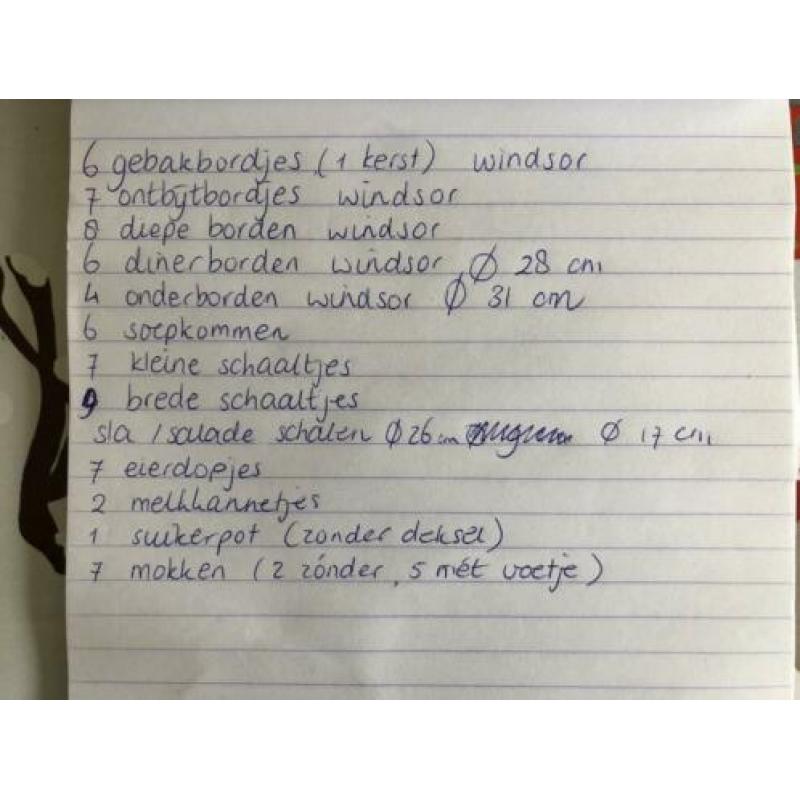 6 gebakbordjes (1 kerst) windsor
7 ontbijtbordjes windsor
8 diepe borden windsor
6 dinerborden windsor, Ø 28 cm
4 onderborden windsor Ø 31 cm
6 soepkommen
7 kleine schaaltjes
9 brede schaaltjes
sla / salade schalen Ø 26 cm Ø 17 cm
7 eierdopjes
2 melkkannetjes
1 suikerpot (zonder deksel)
7 mokken (2 zónder, 5 mét voetje)